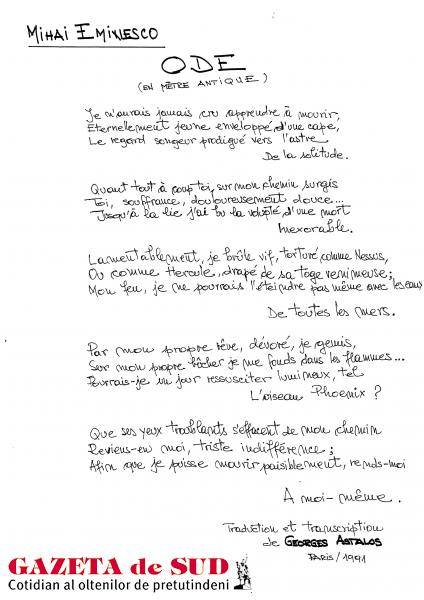 MIHAI EMINESCO
ODE
(EN MÈTRE ANTIQUE)
Je n'aurais jamais cru apprendre à mourir,
Eternellement jeune enveloppé d'une cape,
Le regard songeur prodigué vers l'astre
De la solitude.
Quant tout à coup toi, sur mon chemin surgis
Toi, souffrance, douloureusement douce...
Jusqu'à la lie j'ai bu la volupté d'une mort
Inexorable.
Lamentablement, je brûle vif, torturé comme Nessus,
Ou comme Hercule, drapé de sa toge venimeuse;
Mon feu, je ne pourrais l'éteindre pas même avec les eaux
De toutes les mers.
Par mon propre rêve, dévoré, je gemis,
Sur mon propre bûcher je me fonds dans les flammes...
Pourrais-je un jour ressusciter lumineux, tel
L'oiseau Phoenix ?
Que ses yeux troublants s'effacent de mon chemin
Reviens-en moi, triste indifférence;
Afin que je puisse mourir paisiblement, rends-moi
A moi-même.
Traduction et transcription
de GEORGES ASTALOS
PARIS / 1991
GAZETA de SUD
Cotidian al oltenilor de pretutindeni